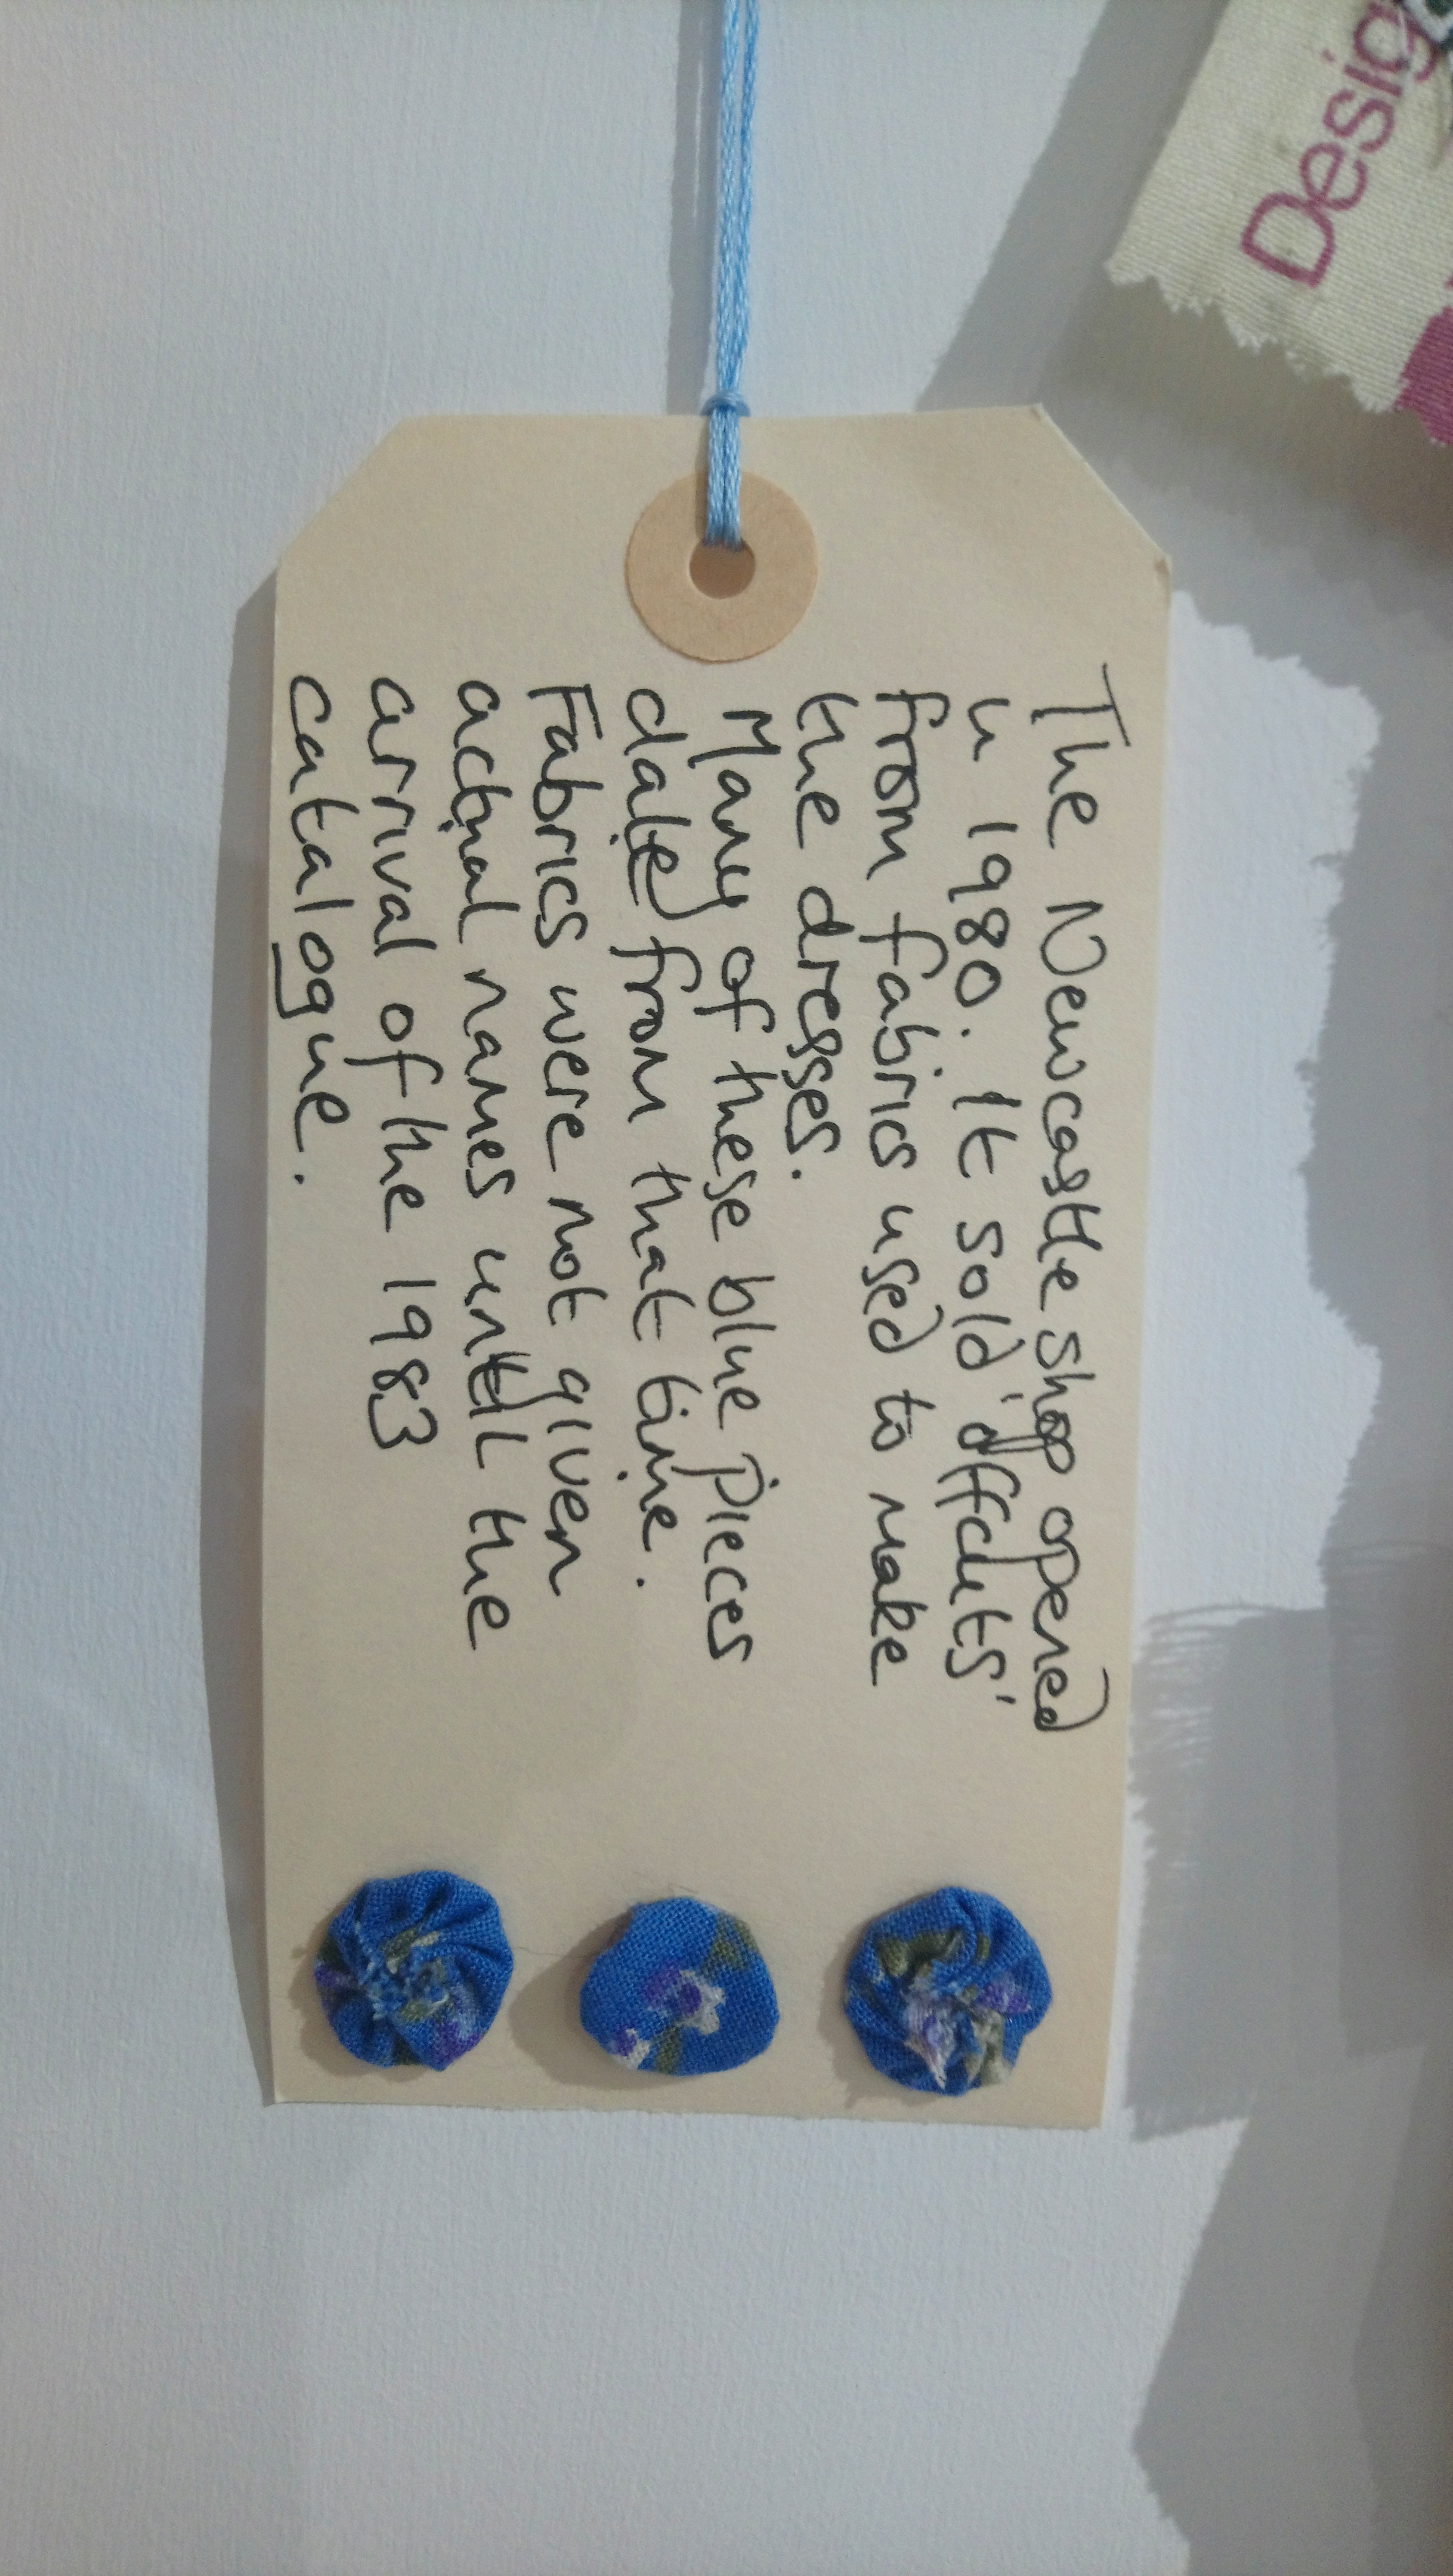 The Newcastle shop opened
in 1980. It sold 'offcuts'
from fabrics used to make
the dresses.
Many of these blue pieces
date from that time.
Fabrics were not given
actual names until the
arrival of the 1983
catalogue.
Desig